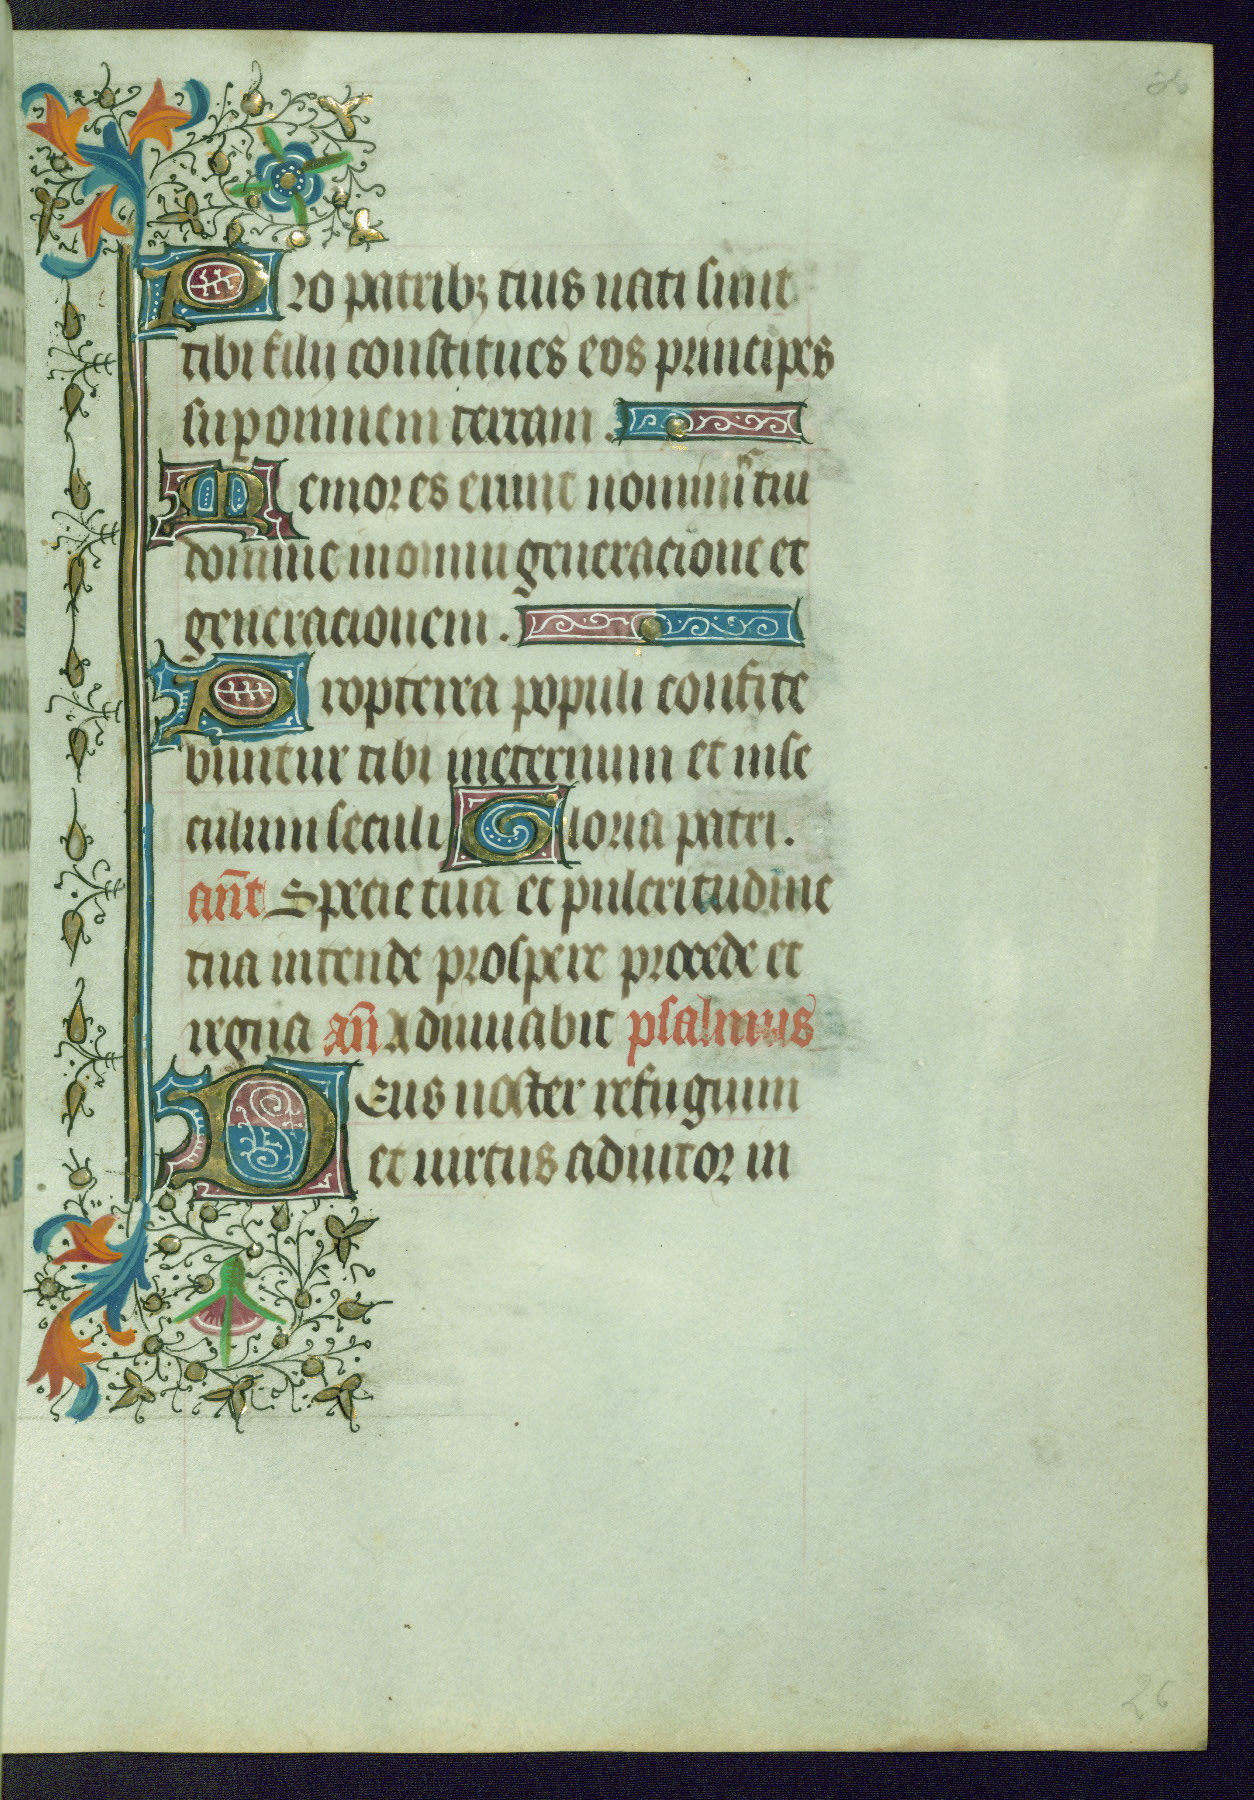 Pro patribꝫ tuis nati sunt
tibi filij constitues eos principes
suꝑ omnem terram .
Memores erunt nominis tui
domine in omni generacione et
generacionem .
Propterea populi confite
buntur tibi ineternum et inse
culum seculi Gloria patri .
an̄t Specie tua et pulcritudine
tua intende prospere procede et
regna an̄ Adiuuabit psalmus
Deus noster refugium
et uirtus adiutor in
26